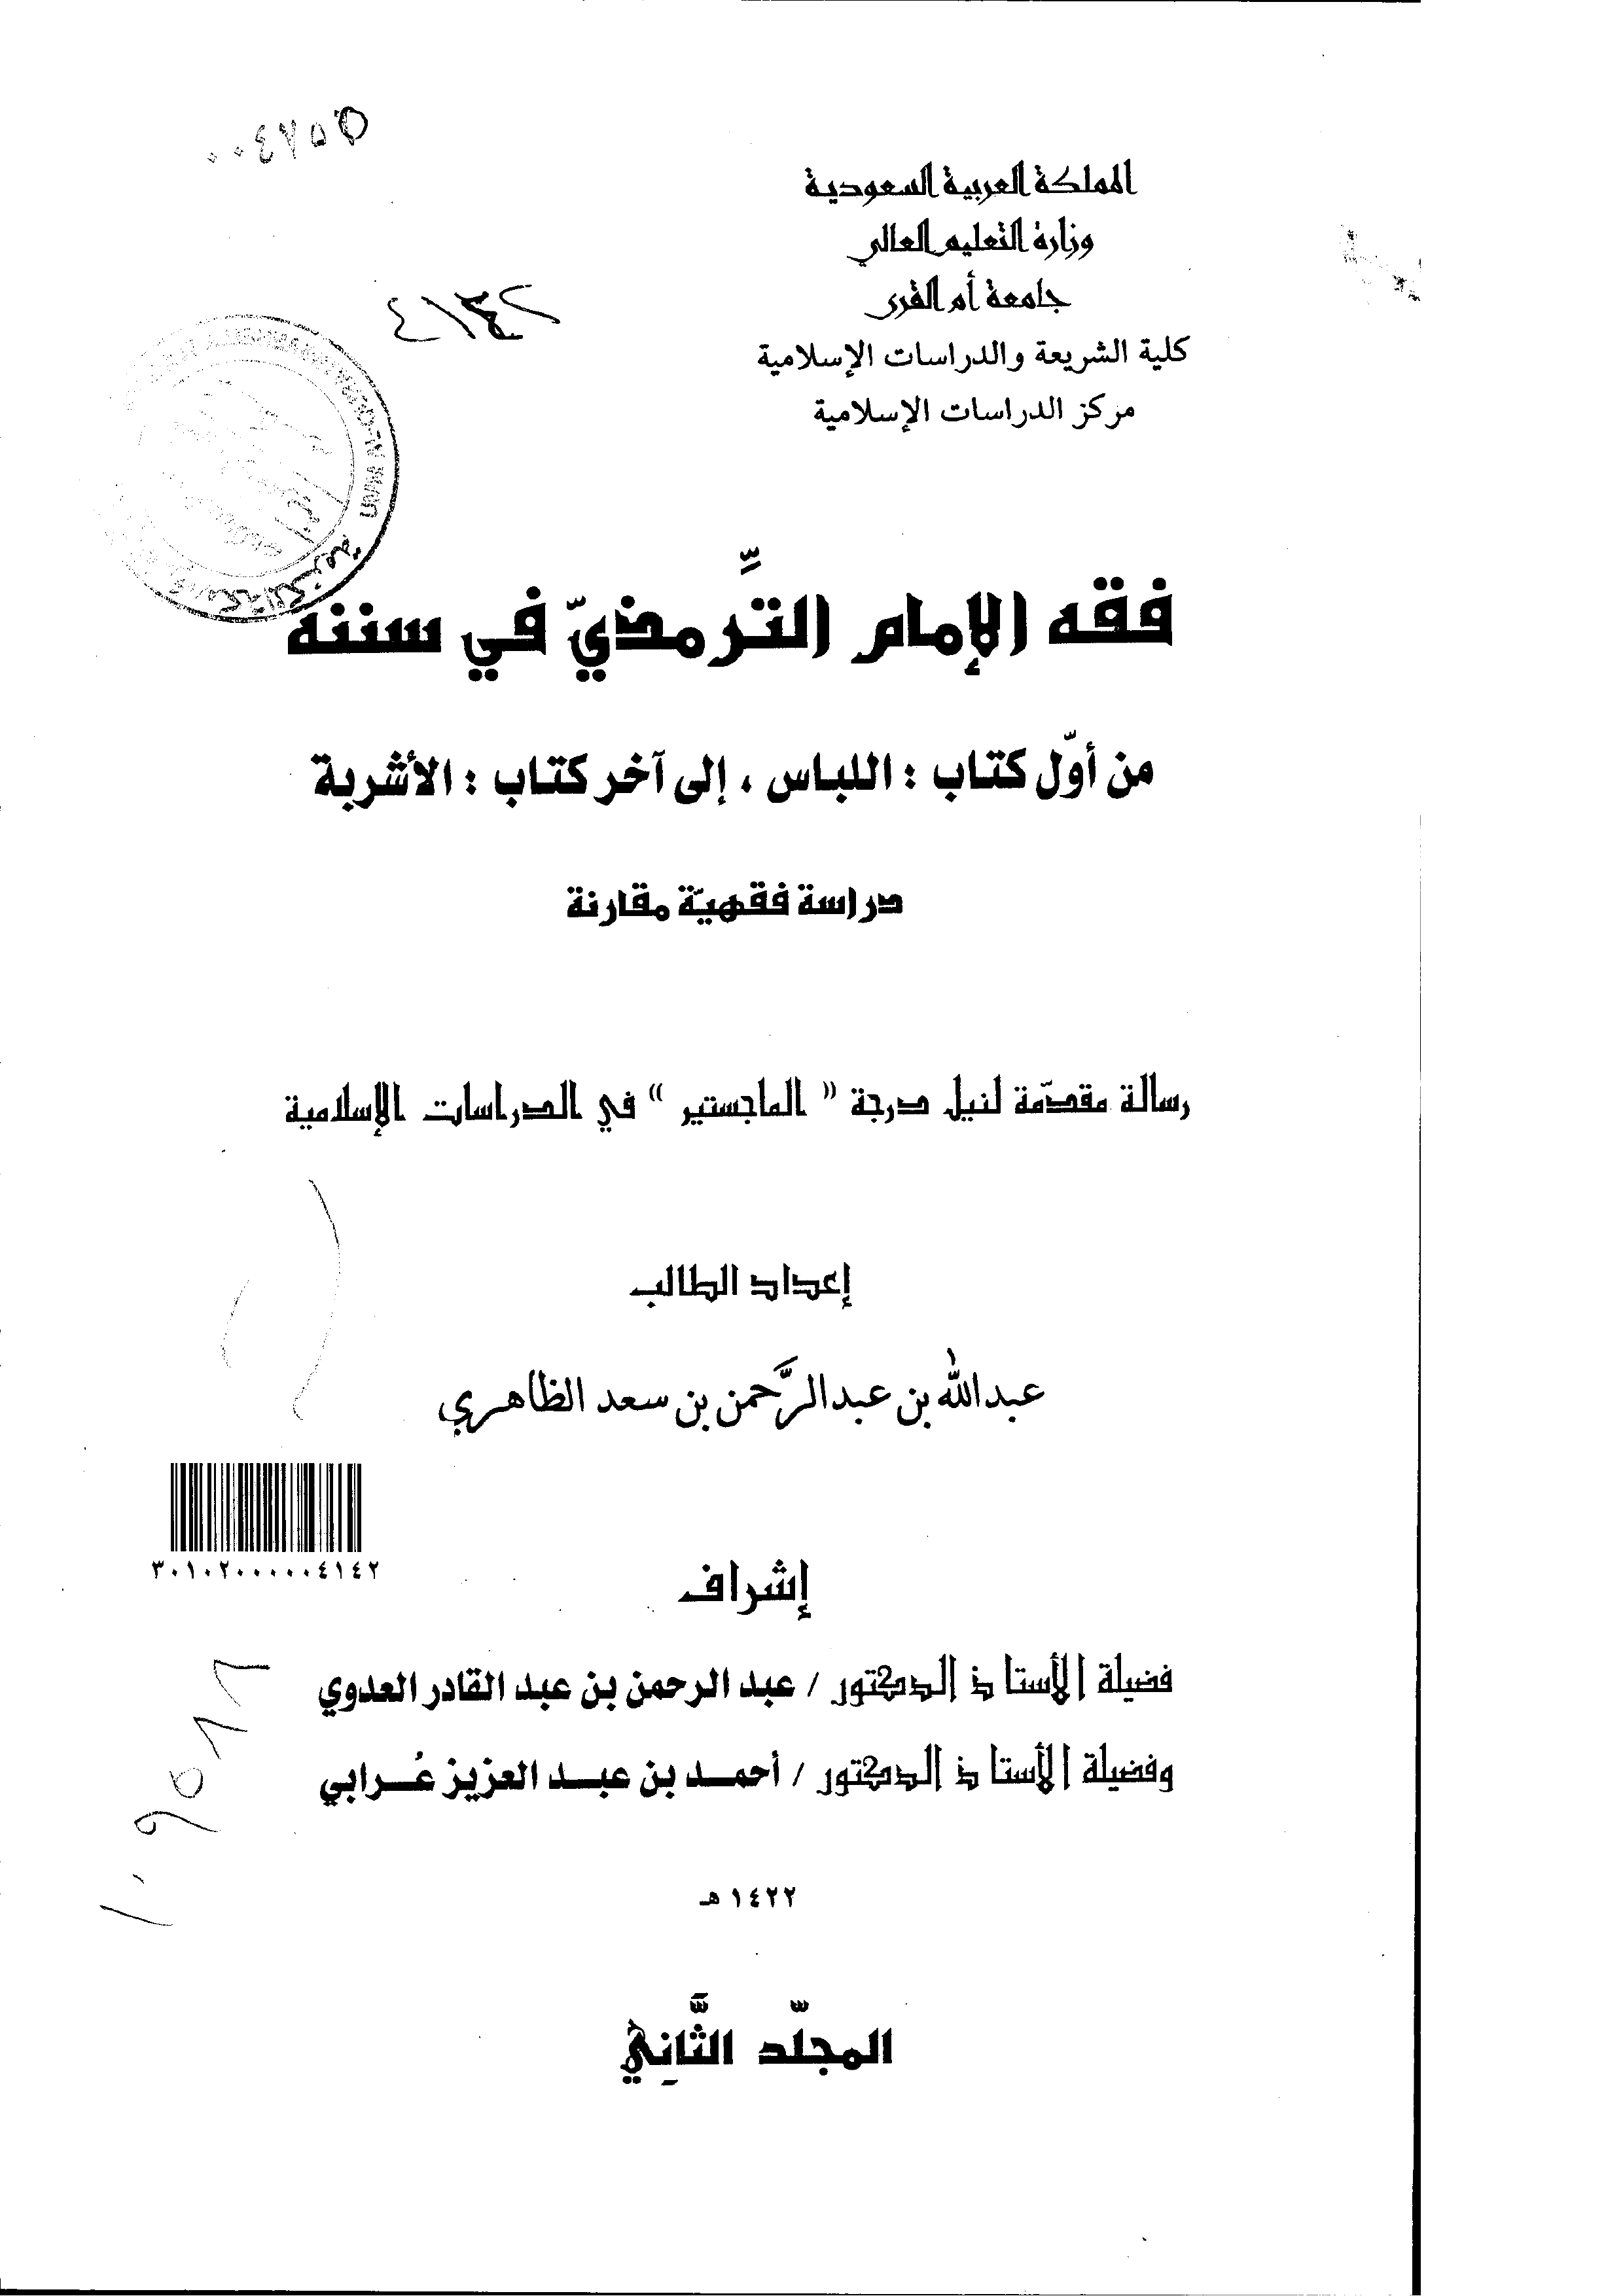 المملكة العربية السعودية
وزارة التعليم العالي
جامعة أم القرى
كلية الشريعة والدراسات الإسلامية
مركز الدراسات الإسلامية
٤١٤٢
فقه الإمام التِّرمذيّ في سننه
من أوّل كتاب : اللباس ، إلى آخر كتاب : الأشربة
دراسة فقهيّة مقارنة
رسالة مقدّمة لنيل درجة " الماجستير " في الدراسات الإسلامية
إعداد الطالب
عبدالله بن عبدالرَّحمن بن سعد الظاهري
٣٠١٠٢٠٠٠٠٠٤١٤٢
إشراف
فضيلة الأستاذ الدكتور / عبد الرحمن بن عبد القادر العدوي
وفضيلة الأستاذ الدكتور / أحمــد بن عبــد العزيز عُــرابي
١٤٢٢ هـ
المجلّد الثَّانِي